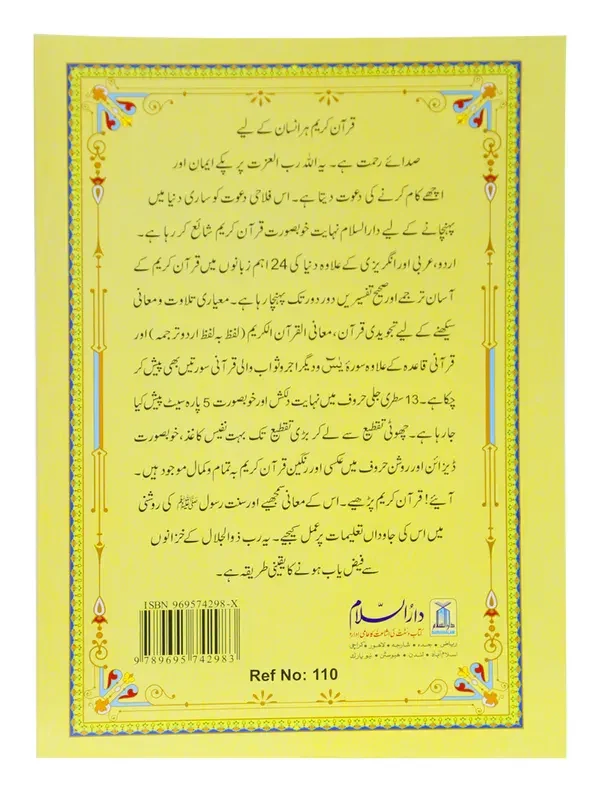 قرآن کریم ہر انسان کے لیے
صدائے رحمت ہے۔ یہ اللہ رب العزت پر پکے ایمان اور
اچھے کام کرنے کی دعوت دیتا ہے۔ اس فلاحی دعوت کو ساری دنیا میں
پہنچانے کے لیے دارالسلام نہایت خوبصورت قرآن کریم شائع کر رہا ہے۔
اردو، عربی اور انگریزی کے علاوہ دنیا کی 24 اہم زبانوں میں قرآن کریم کے
آسان ترجمے اور صحیح تفسیریں دور دور تک پہنچا رہا ہے۔ معیاری تلاوت و معانی
سیکھنے کے لیے تجویدی قرآن، معانی القرآن الکریم (لفظ بہ لفظ اردو ترجمہ) اور
قرآنی قاعدہ کے علاوہ سورۂ یٰسٓ و دیگر اجر و ثواب والی قرآنی سورتیں بھی پیش کر
چکا ہے۔ 13 سطری جلی حروف میں نہایت دلکش اور خوبصورت 5 پارہ سیٹ پیش کیا
جا رہا ہے۔ چھوٹی تقطیع سے لے کر بڑی تقطیع تک بہت نفیس کاغذ، خوبصورت
ڈیزائن اور روشن حروف میں عکسی اور رنگین قرآن کریم بہ تمام و کمال موجود ہیں۔
آیئے! قرآن کریم پڑھیے۔ اس کے معانی سمجھیے اور سنت رسول ﷺ کی روشنی
میں اس کی جاوداں تعلیمات پر عمل کیجیے۔ یہ رب ذوالجلال کے خزانوں
سے فیض یاب ہونے کا یقینی طریقہ ہے۔
ISBN 969574298-X
9 789695 742983
دارالسلام
کتاب و سنت کی اشاعت کا عالمی ادارہ
ریاض • جدہ • شارجہ • لاہور • کراچی
اسلام آباد • لندن • ہیوسٹن • نیویارک
دارالسلام
Ref No: 110